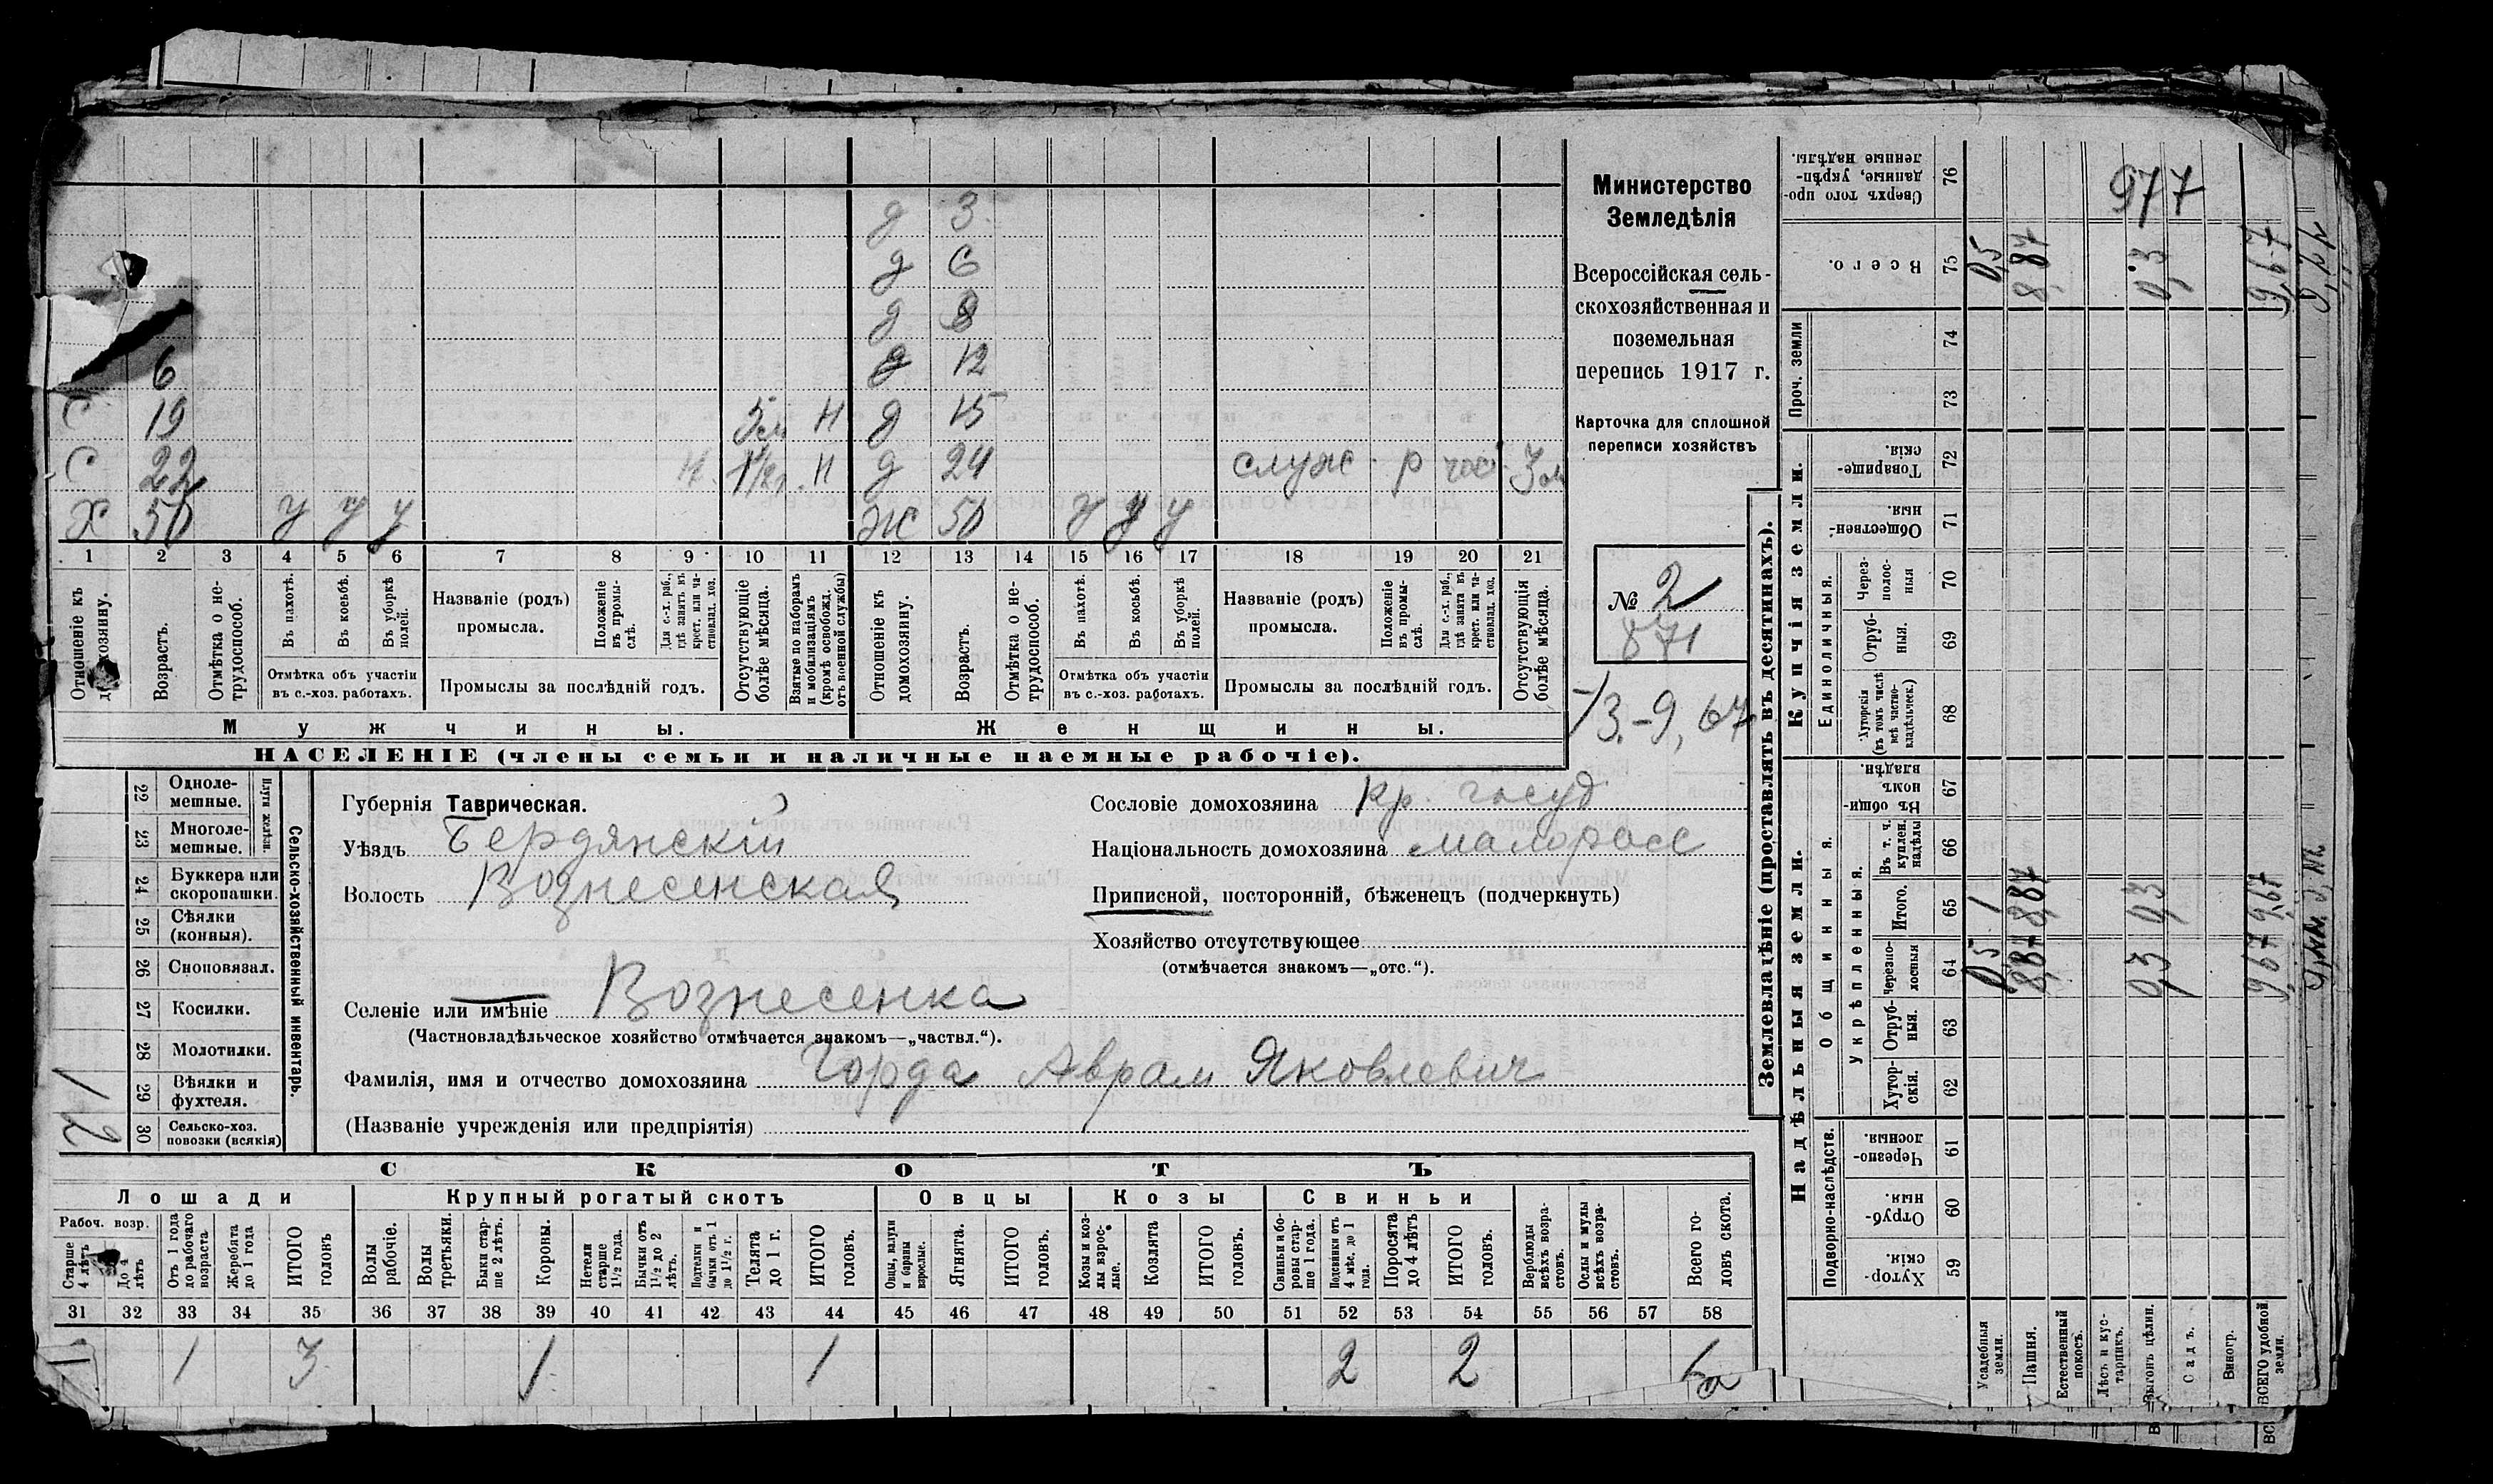 д 3
д 6
д 8
д 12
6
С 19 5 м Н д 15
С 22 Н 1 1/2 г. Н д 24 служ. р час. 3 м
Х 50 у у у Ж 50 у у у
1 2 3 4 5 6 7 8 9 10 11 12 13 14 15 16 17 18 19 20 21
Отношеніе къ домохозяину.
Возрастъ.
Отмѣтка о не-трудоспособ.
Въ пахотѣ.
Въ косьбѣ.
Въ уборкѣ полей.
Отмѣтка объ участіи въ с.-хоз. работахъ.
Названіе (родъ) промысла.
Положеніе въ промы-слѣ.
Для с.-х. раб., гдѣ занятъ въ крест. или ча-стновлад. хоз.
Промыслы за послѣдній годъ.
Отсутствующіе болѣе мѣсяца.
Взятые по наборамъ и мобилизаціямъ (кромѣ освобожд. отъ военной службы)
Отношеніе къ домохозяину.
Возрастъ.
Отмѣтка о не-трудоспособ.
Въ пахотѣ.
Въ косьбѣ.
Въ уборкѣ полей.
Отмѣтка объ участіи въ с.-хоз. работахъ.
Названіе (родъ) промысла.
Положеніе въ промы-слѣ.
Для с.-х. раб., гдѣ занята въ крест. или ча-стновлад. хоз.
Промыслы за послѣдній годъ.
Отсутствующія болѣе мѣсяца.
Мужчины. Женщины.
НАСЕЛЕНІЕ (члены семьи и наличные наемные рабочіе).
Министерство
Земледѣлія
Всероссійская сель-
скохозяйственная и
поземельная
перепись 1917 г.
Карточка для сплошной
переписи хозяйствъ
№ 2
871
13.-9,67
22 Одноле-мешные.
23 Многоле-мешные.
Плуги желѣзн.
24 Буккера или скоропашки.
25 Сѣялки (конныя).
26 Сноповязал.
27 Косилки.
28 Молотилки.
29 Вѣялки и фухтеля. 1
30 Сельско-хоз. повозки (всякія) 2
Сельско-хозяйственный инвентарь.
Губернія Таврическая.
Уѣздъ Бердянскій
Волость Вознесенская
Селеніе или имѣніе Вознесенка
(Частновладѣльческое хозяйство отмѣчается знакомъ—„частвл.“).
Фамилія, имя и отчество домохозяина Горда Аврам Яковлевич
(Названіе учрежденія или предпріятія)
Сословіе домохозяина кр. госуд
Національность домохозяина малоросс
Приписной, посторонній, бѣженецъ (подчеркнуть)
Хозяйство отсутствующее
(отмѣчается знакомъ—„отс.“).
СКОТЪ
Лошади Крупный рогатый скотъ Овцы Козы Свиньи
Рабоч. возр.
Старше 4 лѣтъ
До 4 лѣтъ
Отъ 1 года до рабочаго возраста
Жеребята до 1 года
ИТОГО головъ
Волы рабочіе.
Волы третьяки.
Быки стар-ше 2 лѣтъ.
Коровы.
Нетели старше 1½ года.
Бычки отъ 1½ до 2 лѣтъ.
Подтелки и бычки отъ 1 до 1½ г.
Телята до 1 г.
ИТОГО головъ.
Овцы, валухи и бараны взрослые.
Ягнята.
ИТОГО головъ.
Козы и коз-лы взрос-лые.
Козлята
ИТОГО головъ.
Свиньи и бо-ровы стар-ше 1 года.
Подсвинки отъ 4 мѣс. до 1 года.
Поросята до 4 лѣтъ
ИТОГО головъ.
Верблюды всѣхъ возра-стовъ.
Ослы и мулы всѣхъ возра-стовъ.
Всего го-ловъ скота.
31 32 33 34 35 36 37 38 39 40 41 42 43 44 45 46 47 48 49 50 51 52 53 54 55 56 57 58
1 3 1 1 2 2 6
Землевладѣніе (проставлять въ десятинахъ).
Сверхъ того про-данные, укрѣп-ленные надѣлы. 76 977
Всего. 75 0,5 8,87 0,3 9,67
Проч. земли 74 73
Купчія земли.
Товарище-скія. 72
Обществен-ныя. 71
Единоличныя.
Через-полос-ныя 70
Отруб-ныя. 69
Хуторскія (въ томъ числѣ всѣ частно-владѣльческ.) 68
Надѣльныя земли.
Общинныя.
Въ общин-номъ владѣн. 67
Укрѣпленныя.
Въ т. ч. куплен. надѣлы 66
Итого. 65 8,87 0,3 9,67
Черезпо-лосныя 64 0,5 8,87 0,3 9,67
Отруб-ныя. 63
Хутор-скія. 62
Подворно-наслѣдств.
Черезпо-лосныя. 61
Отруб-ныя. 60
Хутор-скія. 59
Усадебныя земли.
Пашня.
Естественный покосъ.
Лѣсъ и кус-тарникъ.
Выгонъ цѣлин.
Садъ.
Виногр.
ВСЕГО удобной земли.